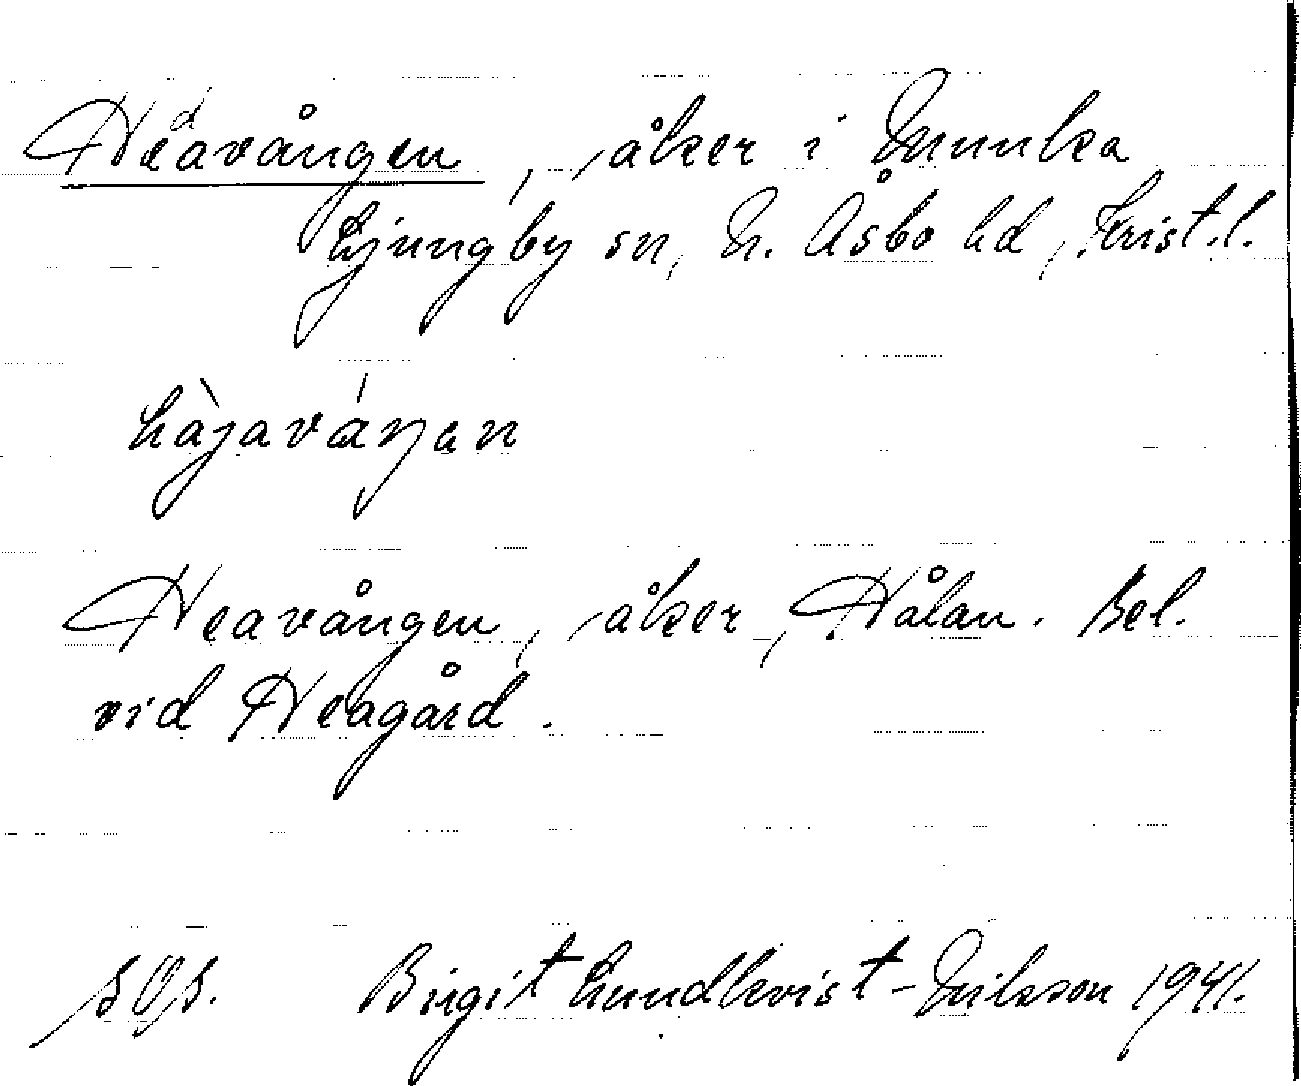 Hedavången, åker i Munka
Ljungby sn, N. Åsbo hd, Krist.l.
hàjaváŋan
Heavången, åker, Hålan. Bel.
vid Heagård.
SOS. Birgit Lundkvist-Nilsson 1941.